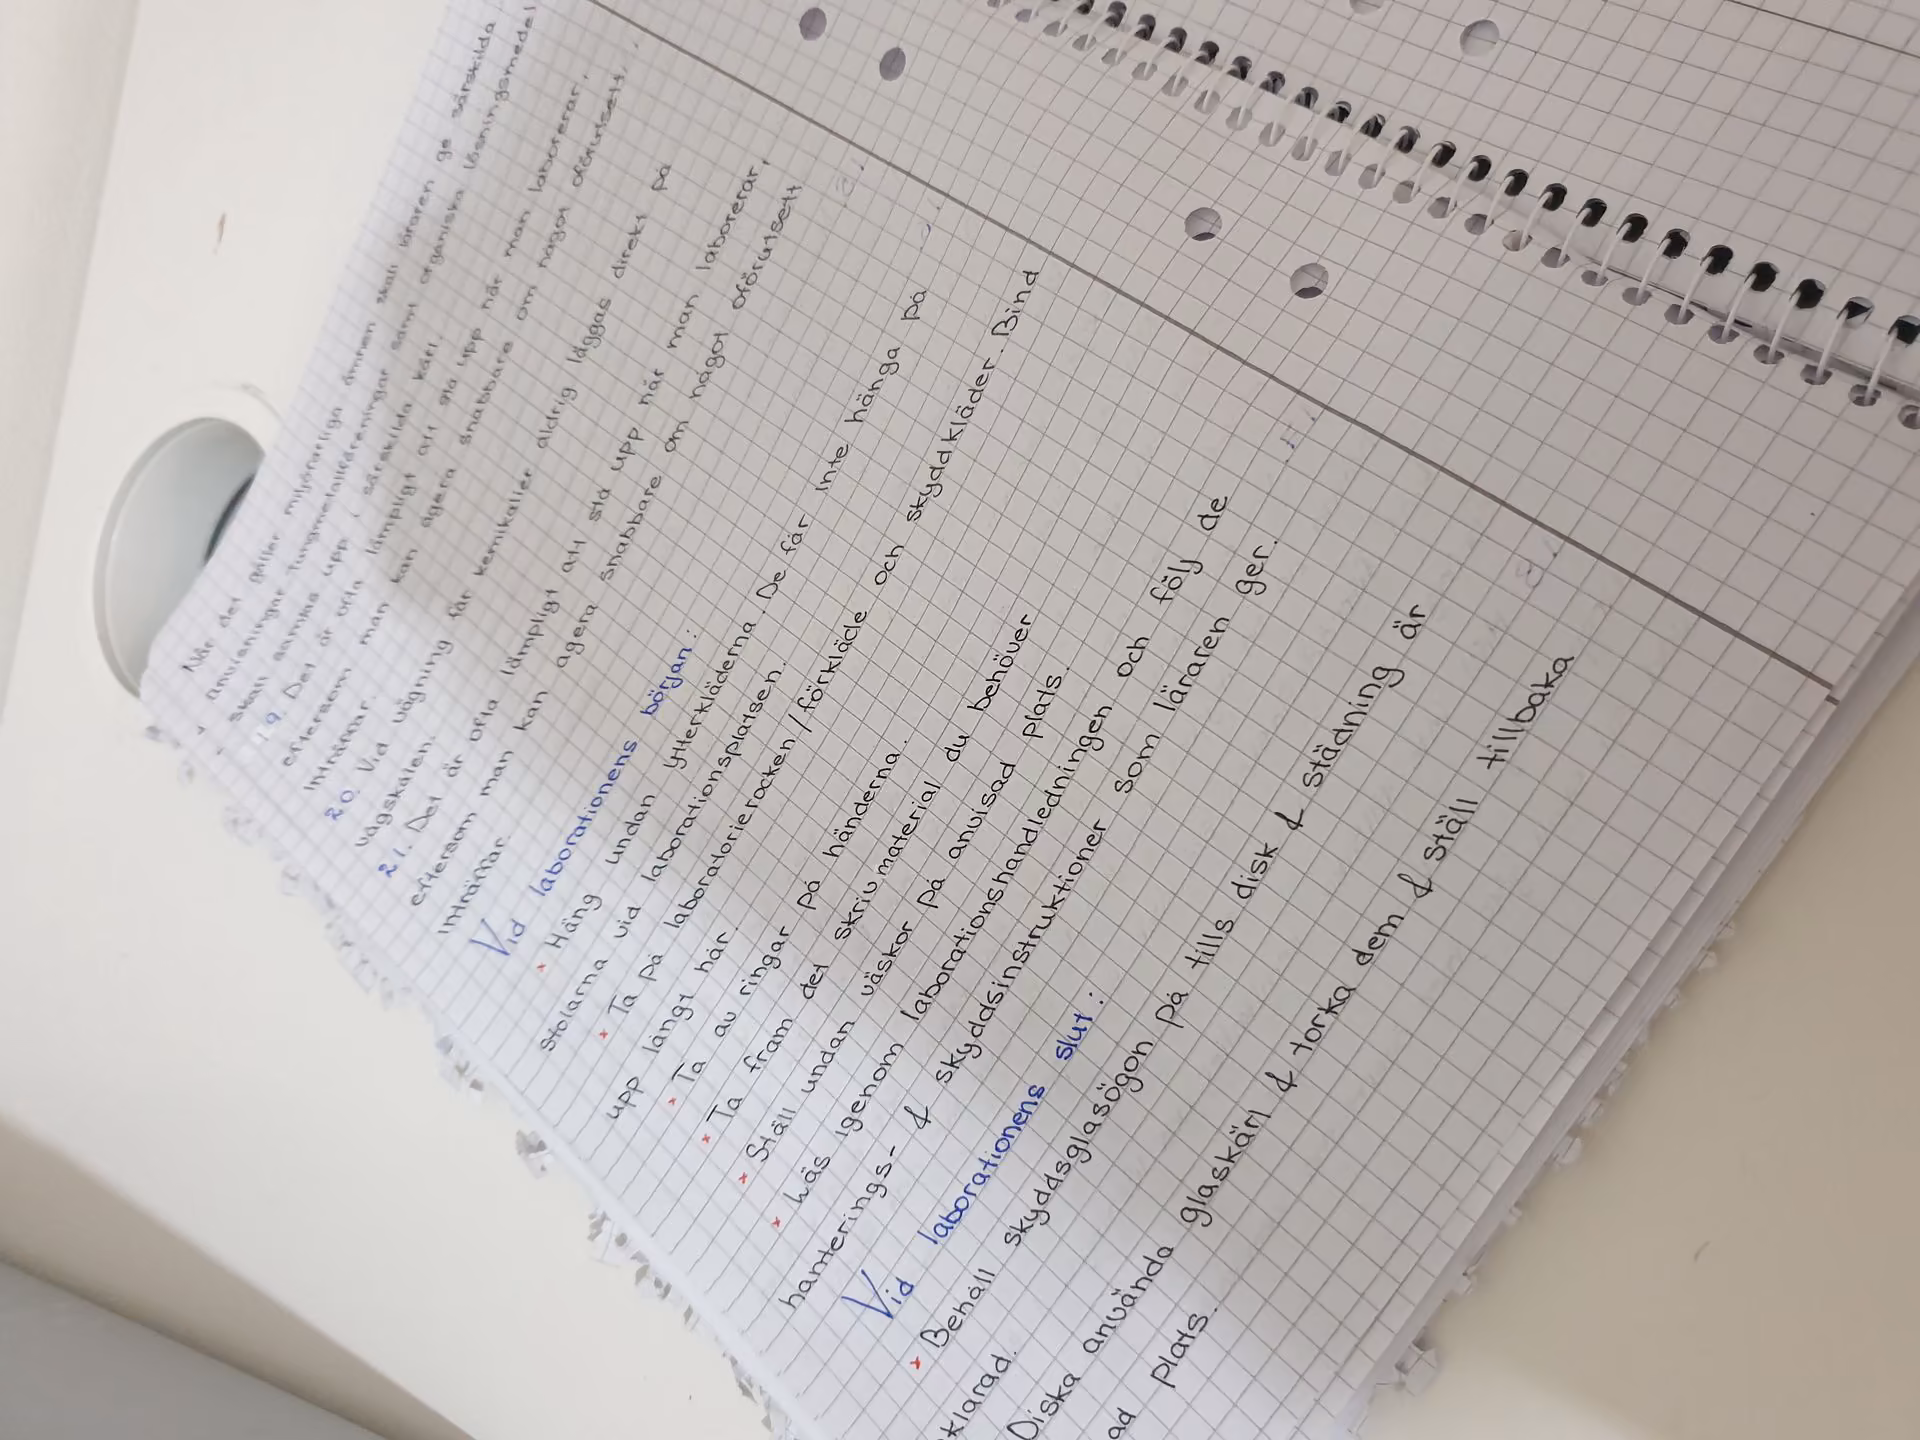 När det gäller miljöfarliga ämnen skall läraren ge särskilda
anvisningar. Tungmetallföreningar samt organiska lösningsmedel
skall samlas upp i särskilda kärl.
19. Det är ofta lämpligt att stå upp när man laborerar,
eftersom man kan agera snabbare om något oförutsett
inträffar.
20. Vid vägning får kemikalier aldrig läggas direkt på
vågskålen.
21. Det är ofta lämpligt att stå upp när man laborerar,
eftersom man kan agera snabbare om något oförutsett
inträffar.
Vid laborationens början:
× Häng undan ytterkläderna. De får inte hänga på
stolarna vid laborationsplatsen.
× Ta på laboratorierocken/förkläde och skyddkläder. Bind
upp långt hår.
× Ta av ringar på händerna.
× Ta fram det skrivmaterial du behöver
× Ställ undan väskor på anvisad plats.
× Läs igenom laborationshandledningen och följ de
hanterings- & skyddsinstruktioner som läraren ger.
Vid laborationens slut:
× Behåll skyddsglasögon på tills disk & städning är
klarad.
Diska använda glaskärl & torka dem & ställ tillbaka
ad plats.